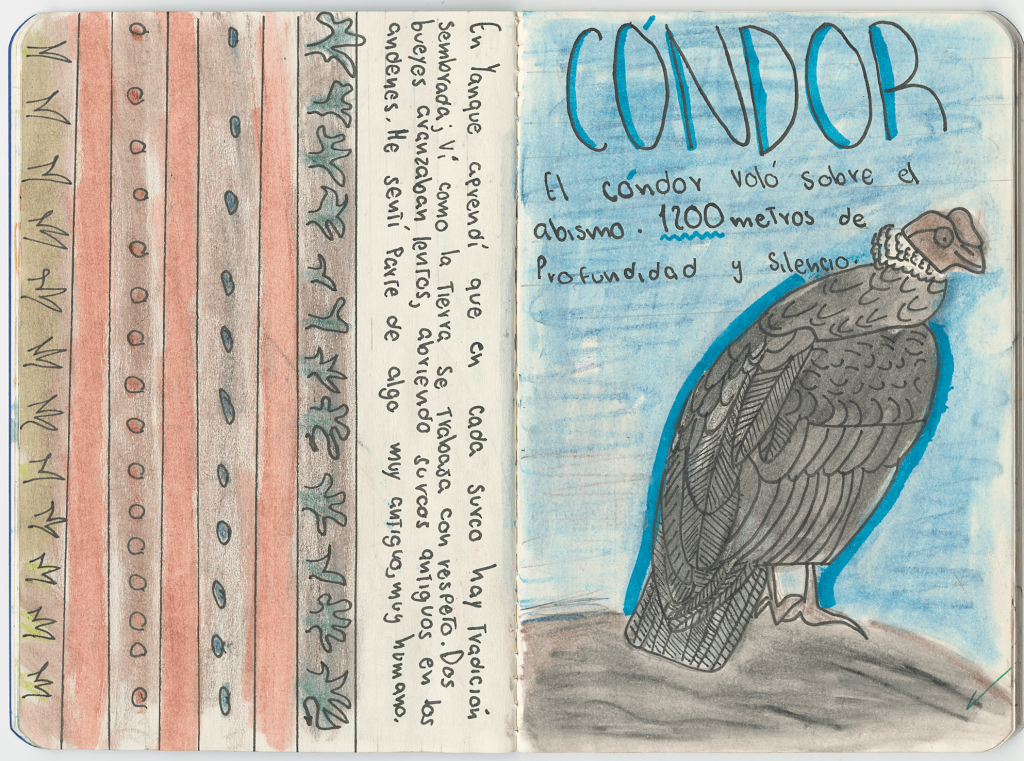 En Yanque aprendí que en cada surco hay tradición
sembrada; ví como la tierra se trabaja con respeto. Dos
bueyes avanzaban lentos, abriendo surcos antiguos en los
andenes. Me sentí parte de algo muy antiguo, muy humano.
CÓNDOR
El cóndor voló sobre el
abismo. 1200 metros de
Profundidad y silencio.